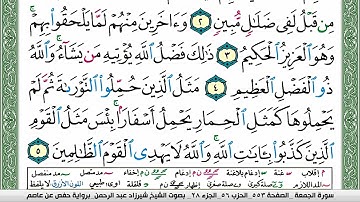 مِن قَبْلُ لَفِى ضَلَٰلٍ مُّبِينٍ ٢ وَءَاخَرِينَ مِنْهُمْ لَمَّا يَلْحَقُوا۟ بِهِمْ
وَهُوَ ٱلْعَزِيزُ ٱلْحَكِيمُ ٣ ذَٰلِكَ فَضْلُ ٱللَّهِ يُؤْتِيهِ مَن يَشَآءُ وَٱللَّهُ
ذُو ٱلْفَضْلِ ٱلْعَظِيمِ ٤ مَثَلُ ٱلَّذِينَ حُمِّلُوا۟ ٱلتَّوْرَىٰةَ ثُمَّ لَمْ
يَحْمِلُوهَا كَمَثَلِ ٱلْحِمَارِ يَحْمِلُ أَسْفَارًۢا بِئْسَ مَثَلُ ٱلْقَوْمِ
ٱلَّذِينَ كَذَّبُوا۟ بِـَٔايَٰتِ ٱللَّهِ وَٱللَّهُ لَا يَهْدِى ٱلْقَوْمَ ٱلظَّٰلِمِينَ ٥
سورة الجمعة. الصفحة ٥٥٣ الحزب ٥٦ الجزء ٢٨ بصوت الشيخ شيرزاد عبد الرحمن. برواية حفص عن عاصم